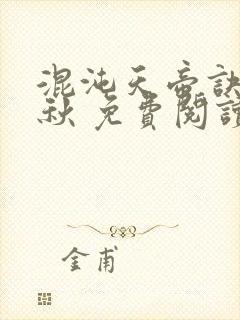 混沌天帝訣
秋 免費閱讀
金甫